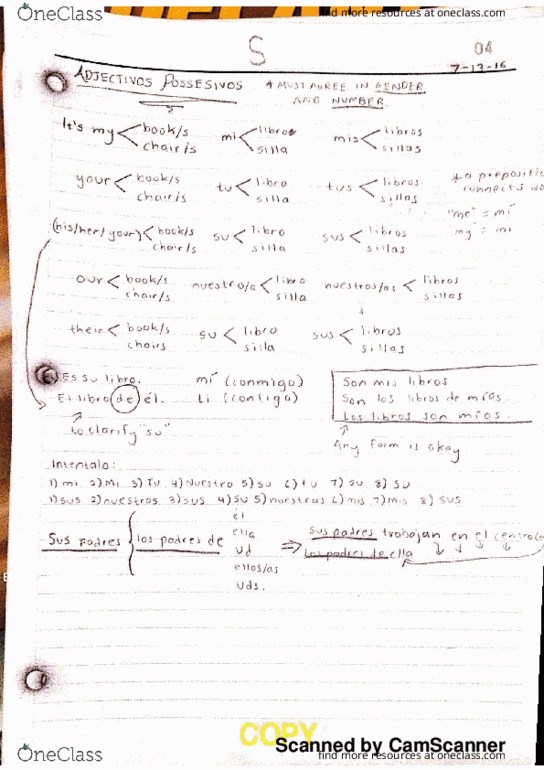 OneClass
find more resources at oneclass.com
S
04
7-13-16
ADJECTIVOS POSSESIVOS * MUST AGREE IN GENDER
AND NUMBER
It's my < book/s chair/s mi < libro silla mis < libros sillas
your < book/s chair/s tu < libro silla tus < libros sillas
*a preposit
connects wo
"me" = mí
"my" = mi
(his/her/your) < book/s chair/s su < libro silla sus < libros sillas
our < book/s chair/s nuestro/a < libro silla nuestros/as < libros sillas
their < book/s chairs su < libro silla sus < libros sillas
Es su libro. mí (conmigo)
El libro de él. ti (contigo)
to clarify "su"
Son mis libros
Son los libros de míos.
Los libros son míos.
Any form is okay
Intentalo:
1) mi 2) Mi 3) Tu 4) Nuestro 5) su 6) tu 7) su 8) su
1) sus 2) nuestros 3) sus 4) su 5) nuestras 6) mis 7) mis 8) sus
Sus padres { los padres de él
ella
Ud
ellos/as
Uds.
⇒ Sus padres trabajan en el centro
Los padres de ella
COPY
Scanned by CamScanner
OneClass
find more resources at oneclass.com